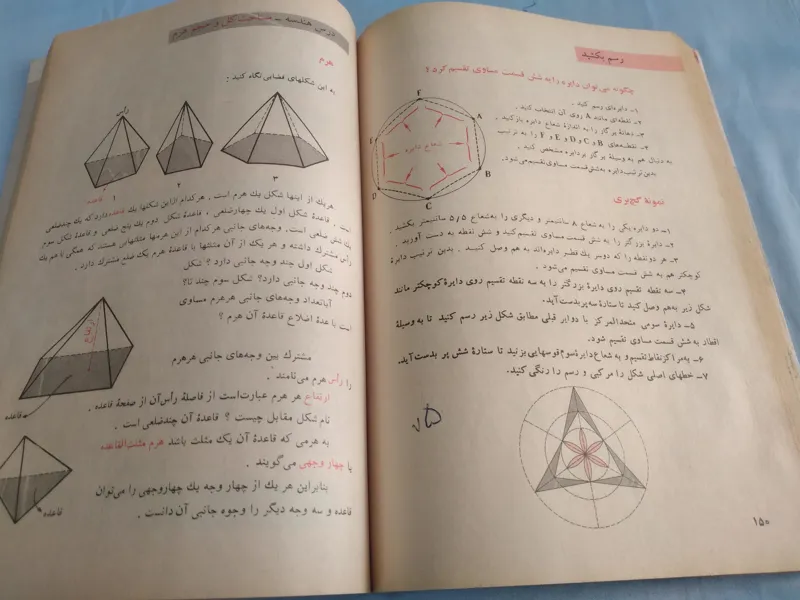 رسم بکنید
چگونه می‌توان دایره را به شش قسمت مساوی تقسیم کرد؟
۱- دایره‌ای رسم کنید.
۲- نقطه‌ای مانند A روی آن انتخاب کنید.
۳- دهانهٔ پرگار را به اندازهٔ شعاع دایره باز کنید.
۴- نقطه‌های B و C و D و E و F را به ترتیب
به دنبال هم به وسیلهٔ پرگار بر دایره مشخص کنید.
بدین ترتیب دایره به شش قسمت مساوی تقسیم می‌شود.
F
A
B
C
D
E
شعاع دایره
نمونهٔ گچ‌بری
۱- دو دایره یکی را به شعاع ۸ سانتیمتر و دیگری را به شعاع ۵/۵ سانتیمتر بکشید.
۲- دایرهٔ بزرگتر را به شش قسمت مساوی تقسیم کنید و شش نقطه به دست آورید.
۳- هر دو نقطه را که دو سر یک قطر دایره‌اند به هم وصل کنید. بدین ترتیب دایرهٔ
کوچکتر هم به شش قسمت مساوی تقسیم می‌شود.
۴- سه نقطه تقسیم روی دایرهٔ بزرگتر را به سه نقطه تقسیم روی دایرهٔ کوچکتر مانند
شکل زیر به هم وصل کنید تا ستارهٔ سه پر بدست آید.
۵- دایرهٔ سومی متحدالمرکز با دوایر قبلی مطابق شکل زیر رسم کنید تا به وسیلهٔ
اقطار به شش قسمت مساوی تقسیم شود.
۶- به مرکز نقاط تقسیم و به شعاع دایرهٔ سوم قوسهایی بزنید تا ستارهٔ شش پر بدست آید.
۷- خطهای اصلی شکل را مرکبی و رسم را رنگی کنید.
۱۵۰
درس هندسه -
هرم
به این شکلهای فضایی نگاه کنید:
رأس
قاعده
۱
۲
۳
هر یک از اینها شکل یک هرم است. هر کدام از این شکلها یک قاعده دارد که یک چندضلعی
است. قاعدهٔ شکل اول یک چهارضلعی، قاعدهٔ شکل دوم یک پنج ضلعی و قاعدهٔ شکل سوم
یک شش ضلعی است. وجه‌های جانبی هر کدام از این هرمها مثلثهایی هستند که همگی با هم یک
رأس مشترک داشته و هر یک از آن مثلثها با قاعدهٔ هرم یک ضلع مشترک دارد.
شکل اول چند وجه جانبی دارد؟ شکل
دوم چند وجه جانبی دارد؟ شکل سوم چند تا؟
آیا تعداد وجه‌های جانبی هر هرم مساوی
است با عدهٔ اضلاع قاعدهٔ آن هرم؟
ارتفاع
قاعده
مشترک بین وجه‌های جانبی هر هرم
را رأس هرم می‌نامند.
ارتفاع هر هرم عبارت است از فاصلهٔ رأس آن از صفحهٔ قاعده.
نام شکل مقابل چیست؟ قاعدهٔ آن چند ضلعی است.
به هرمی که قاعدهٔ آن یک مثلث باشد هرم مثلث‌القاعده
یا چهار وجهی می‌گویند.
بنابراین هر یک از چهار وجه یک چهاروجهی را می‌توان
قاعده و سه وجه دیگر را وجوه جانبی آن دانست.
قاعده